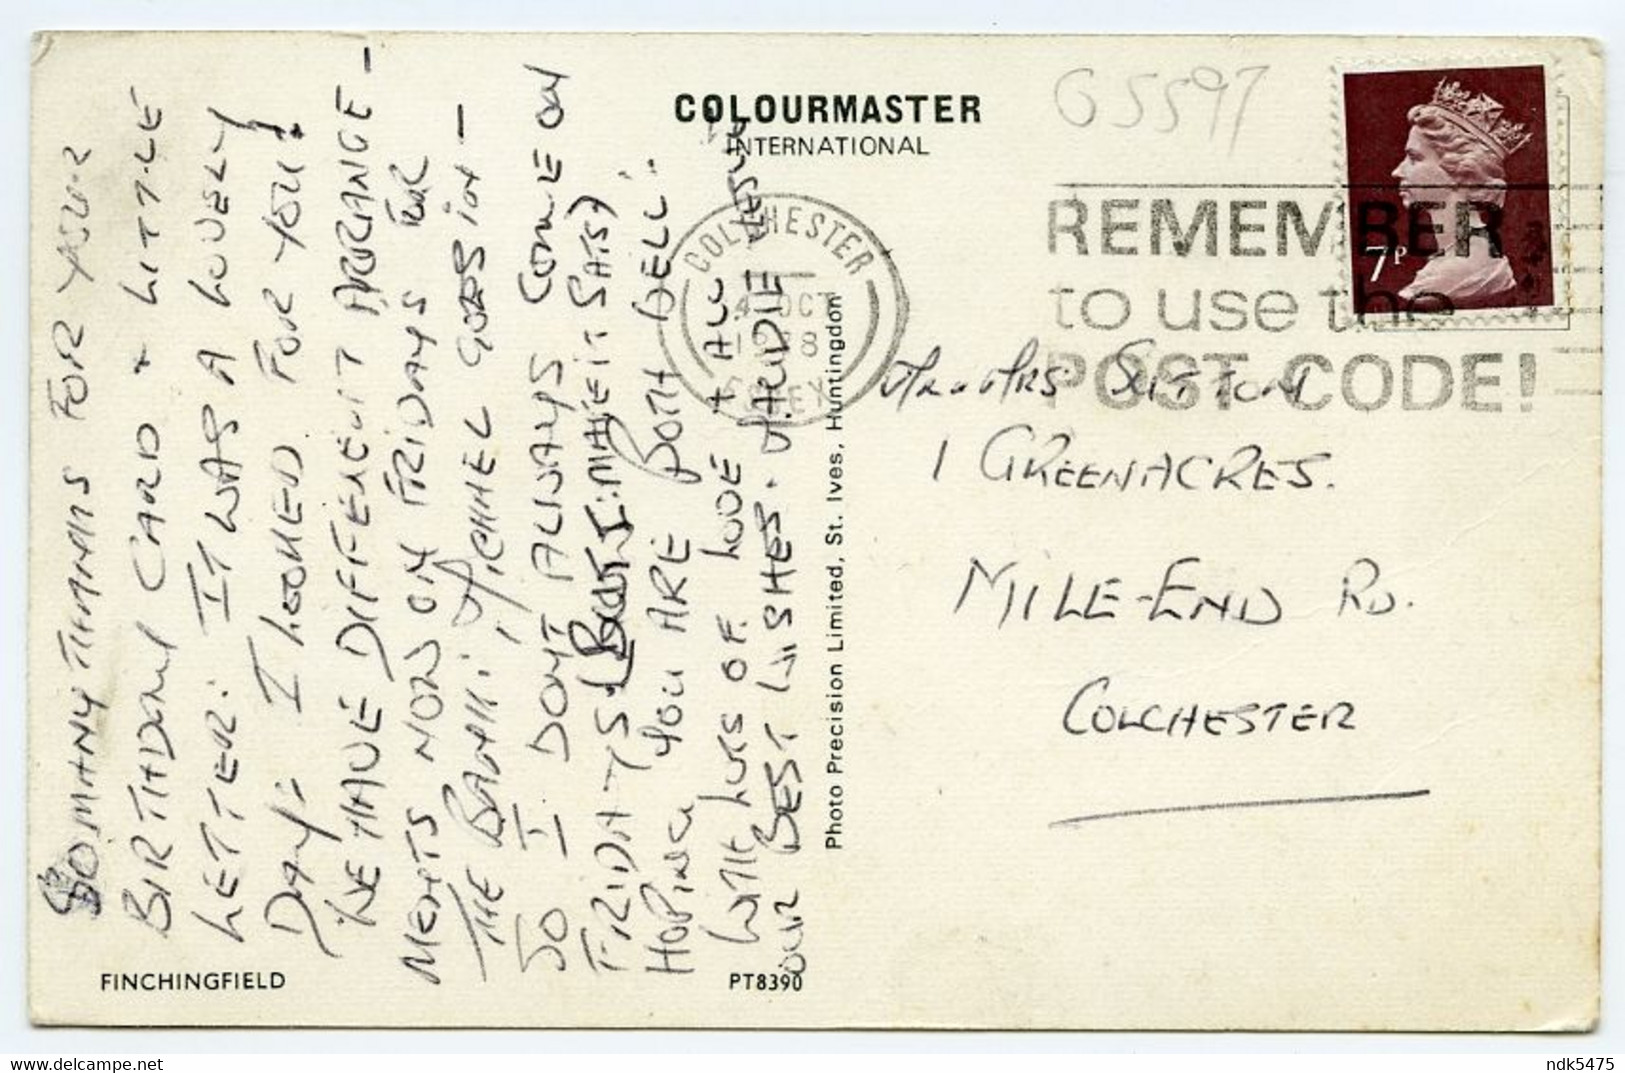 SO MANY THANKS FOR YOUR
BIRTHDAY CARD + LITTLE
LETTER: IT WAS A LOVELY
DAY: I LOOKED FOR YOU!
WE HAVE DIFFERENT ARRANGE-
MENTS NOW ON FRIDAYS FOR
THE BANK: MICHAEL GOES IN -
SO I DONT ALWAYS COME ON
FRIDAYS (BUT I: MAKE IT SATS)
HOPING YOU ARE BOTH WELL:
WITH LOTS OF LOVE + ALL
OUR BEST WISHES.
FINCHINGFIELD
PT8390
COLOURMASTER
INTERNATIONAL
Photo Precision Limited, St. Ives, Huntingdon
G5597
COLCHESTER
OCT
ESSEX
REMEMBER
to use the
POST CODE!
7P
MR & MRS SUTTON
1 GREENACRES.
MILE-END RD.
COLCHESTER
delcampe.net
ndk5475